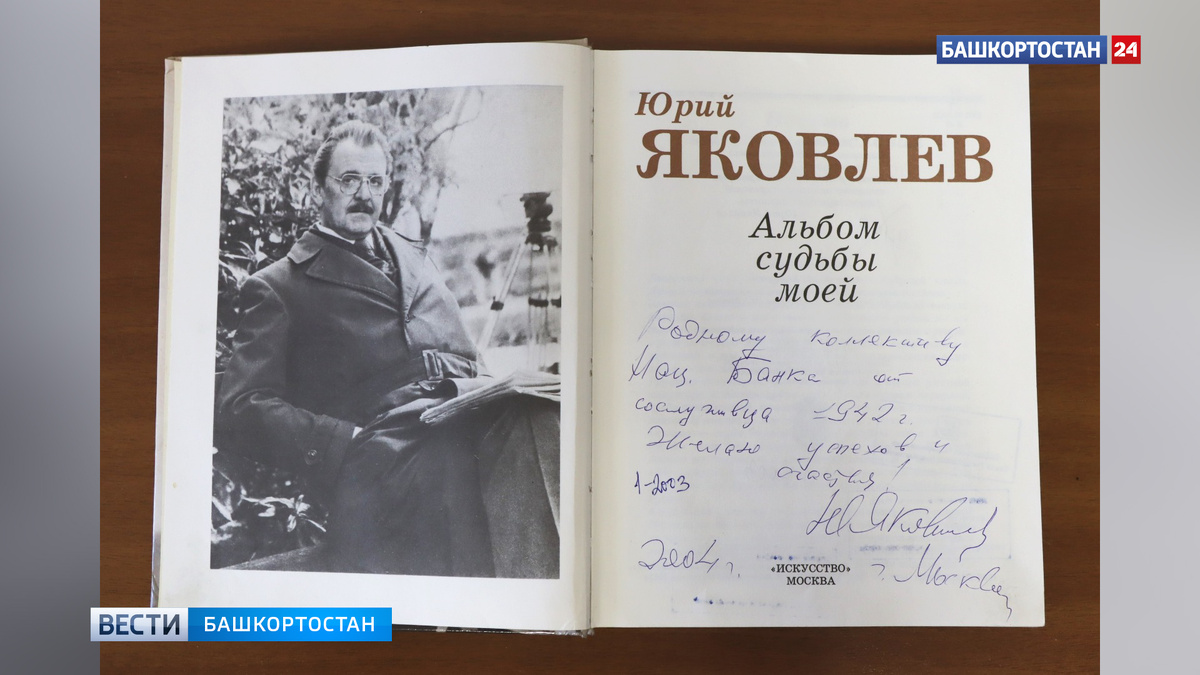 БАШКОРТОСТАН 24
Юрий
ЯКОВЛЕВ
Альбом
судьбы
моей
Родному коллективу
Нац. Банка от
сослуживца 1942 г.
Желаю успехов и
счастья!
1-2003
ЮЯковлев
2004 г. г. Москва
«ИСКУССТВО»
МОСКВА
ВЕСТИ БАШКОРТОСТАН